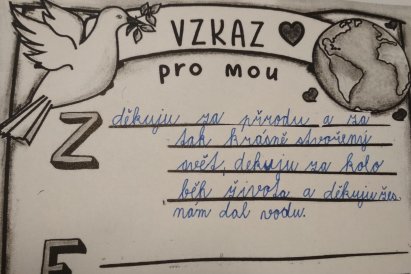 VZKAZ
pro mou
Z
děkuju za přírodu a za
tak krásně stvořený
svět, dekuju za kolo
běh života a děkuju žes
nám dal vodu.